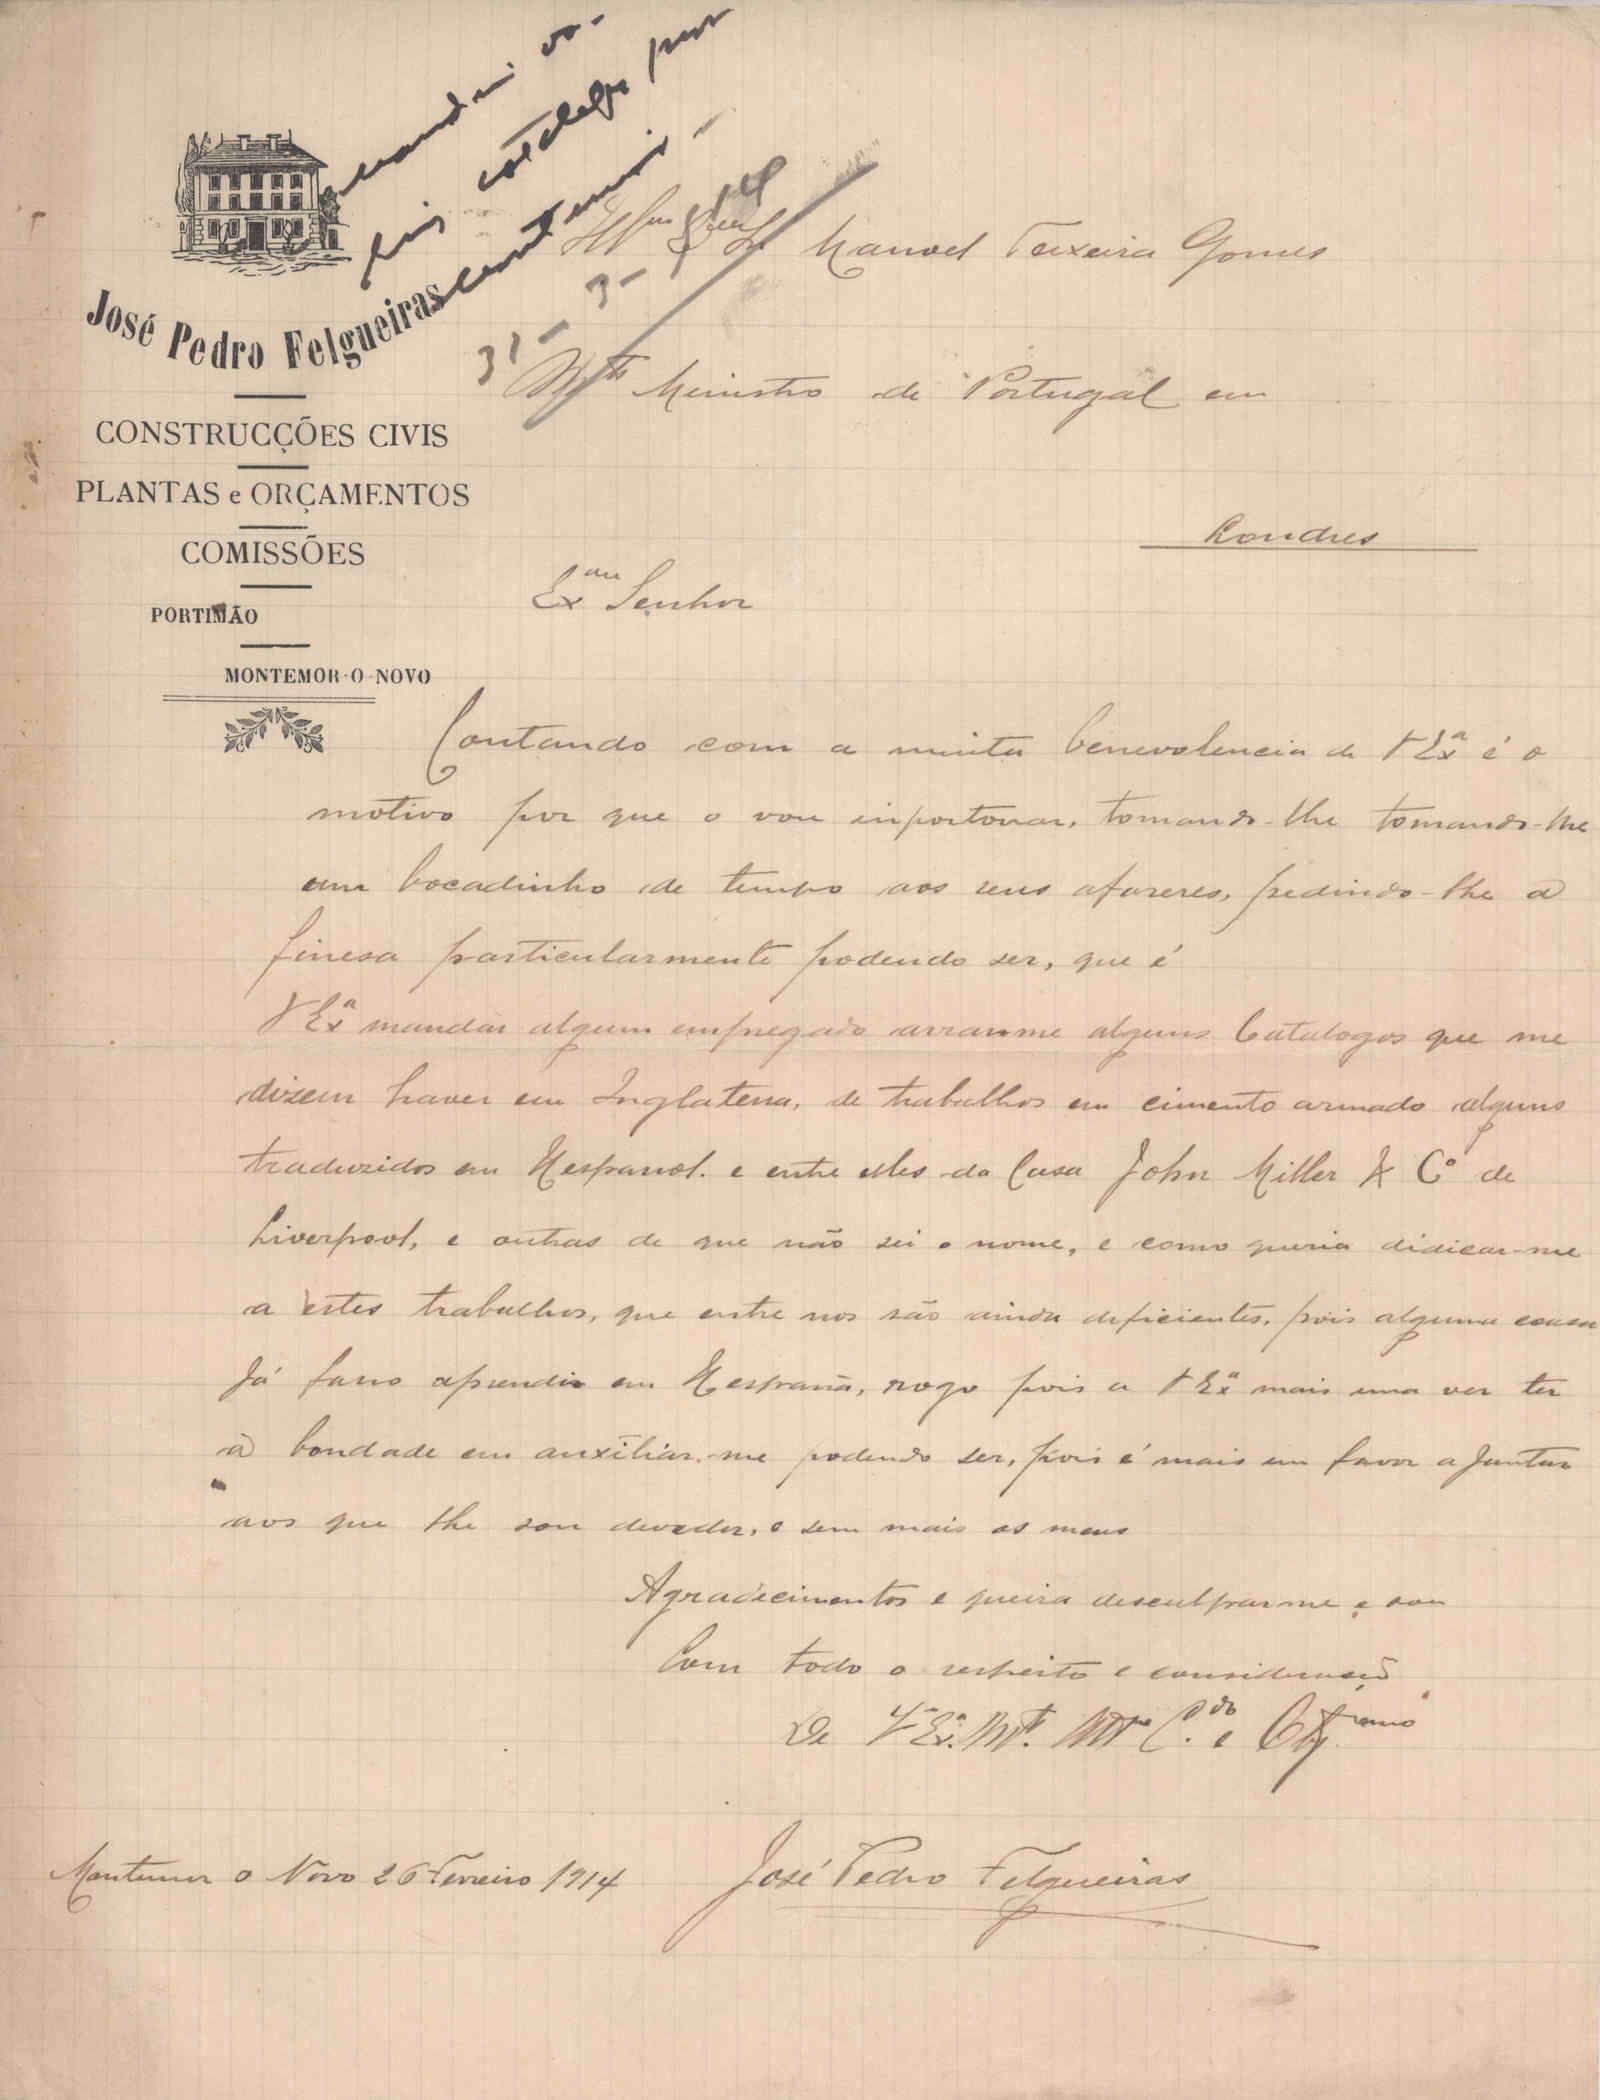 José Pedro Felgueiras
CONSTRUCÇÕES CIVIS
PLANTAS e ORÇAMENTOS
COMISSÕES
PORTIMÃO
MONTEMOR-O-NOVO
mandei va-
rios catalogos para
cimento armado
31-3-914
Manoel Teixeira Gomes
Ministro de Portugal em
Londres
Exmo Senhor
Contando com a muita benevolencia de V Exª é o
motivo por que o vou inportonar, tomando-lhe tomando-lhe
um bocadinho de tempo aos seus afazeres, pedindo-lhe a
finesa particularmente podendo ser, que é
V Exª mandar algum empregado arranme alguns Catalogos que me
dizem haver em Inglaterra, de trabalhos em cimento armado alguns
traduzidos em Hespanol. e entre elles da Casa John Miller & Cº de
Liverpool, e outras de que não sei o nome, e como queria didicar-me
a estes trabalhos, que entre nos são ainda deficientes, pois alguma cousa
Já faço aprendi em Hespana, rogo pois a V Exª mais uma vez ter
a bondade em auxiliar-me podendo ser, pois é mais um favor a Juntar
aos que lhe sou devedor, e sem mais os meus
Agradecimentos e queira desculparme e sou
Com todo o respeito e consideração
De Vª Exª. Mtº. Cdo. e Obgmo
Montemor o Novo 26 Fevreiro 1914
José Pedro Felgueiras